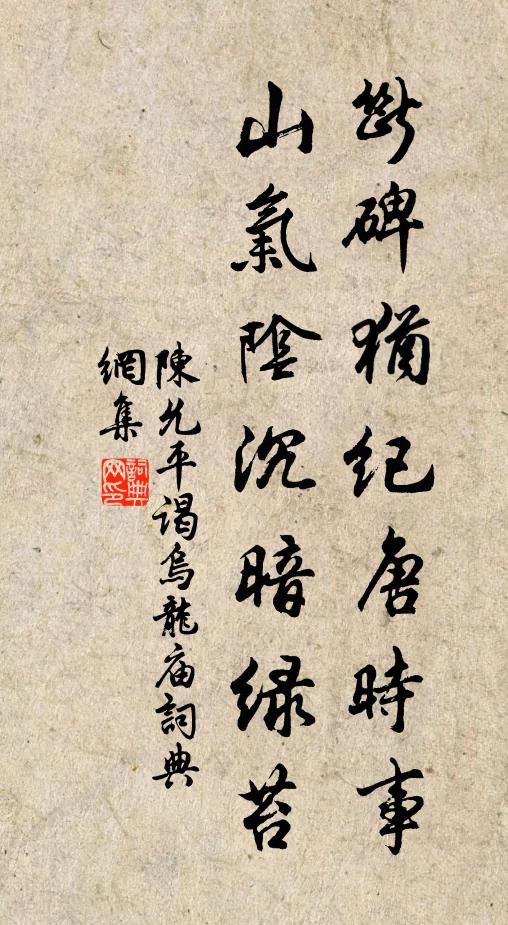 斷碑猶紀唐時事
山氣陰沉暗绿苔
陳允平谒烏龍庙詞典
網集
詞典网印